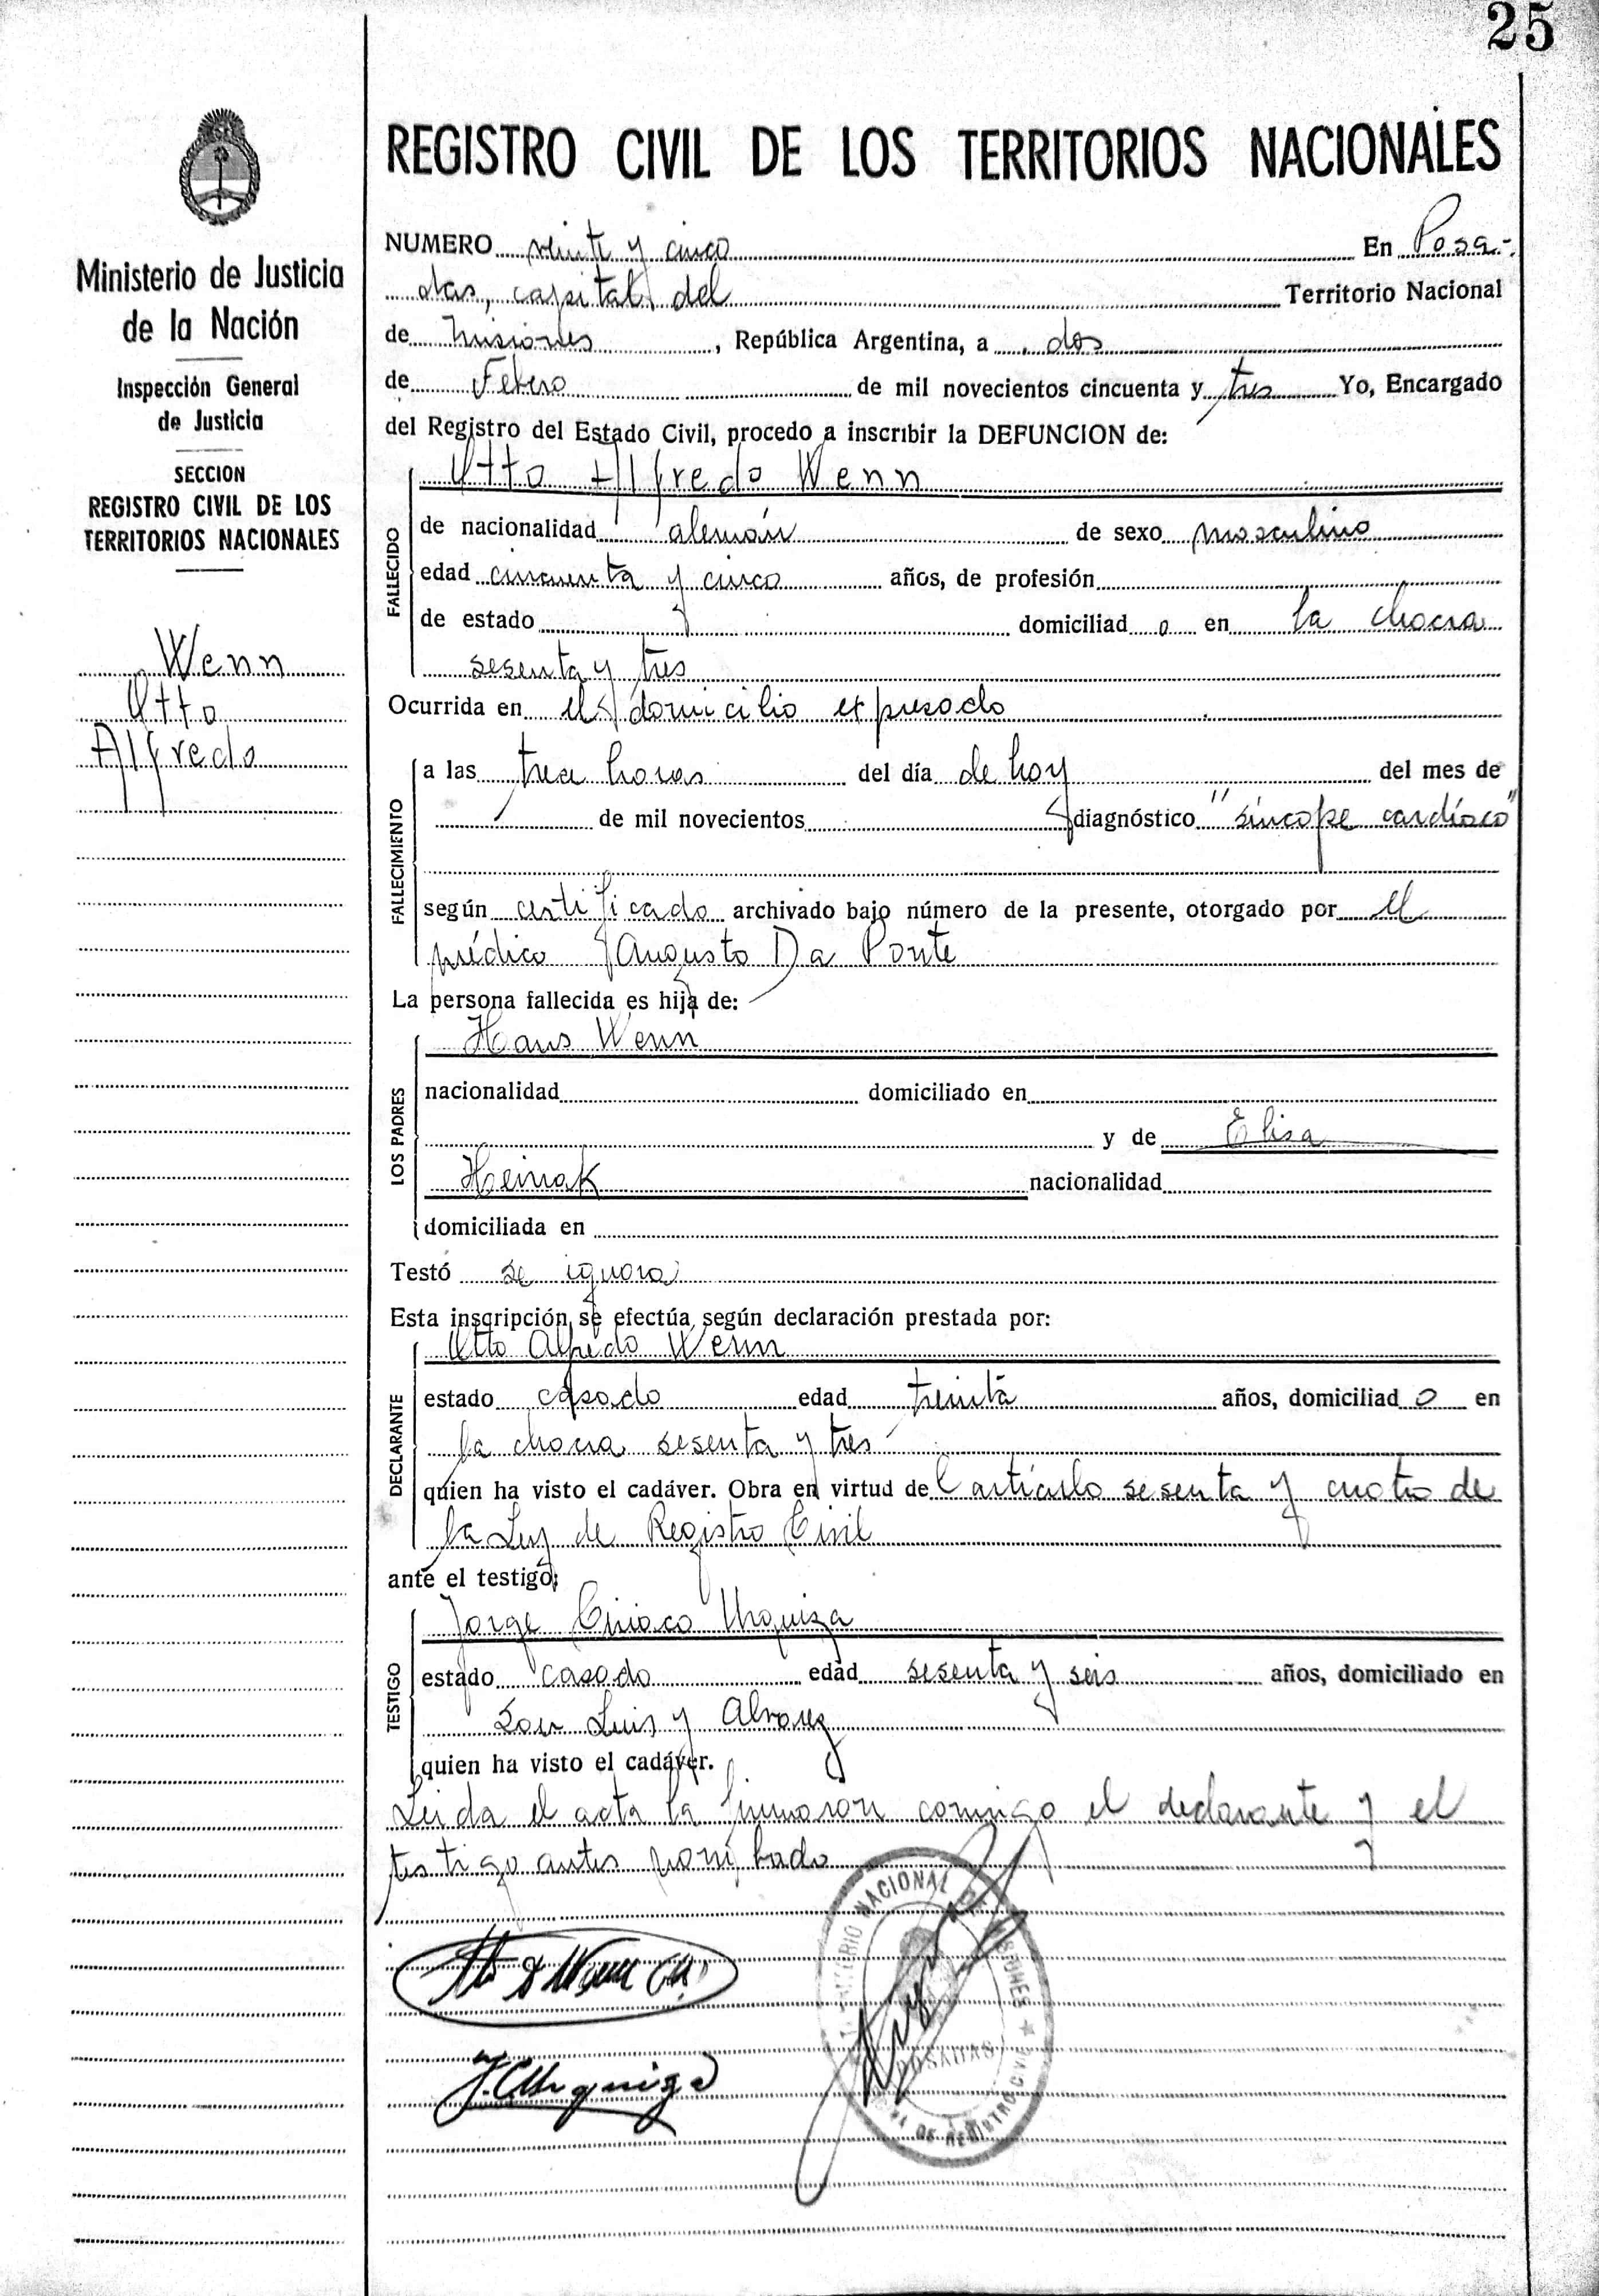 25
REGISTRO CIVIL DE LOS TERRITORIOS NACIONALES
Ministerio de Justicia
de la Nación
Inspección General
de Justicia
SECCION
REGISTRO CIVIL DE LOS
TERRITORIOS NACIONALES
Wenn
Otto
Alfredo
NUMERO veinte y cinco En Posa-
das, capital del Territorio Nacional
de Misiones, República Argentina, a dos
de Febrero de mil novecientos cincuenta y tres Yo, Encargado
del Registro del Estado Civil, procedo a inscribir la DEFUNCION de:
FALLECIDO
Otto Alfredo Wenn
de nacionalidad alemán de sexo masculino
edad cincuenta y cinco años, de profesión
de estado domiciliad o en la chacra
sesenta y tres
Ocurrida en el domicilio expresado
FALLECIMIENTO
a las tres horas del día de hoy del mes de
de mil novecientos diagnóstico "síncope cardíaco"
según certificado archivado bajo número de la presente, otorgado por el
médico Augusto Da Ponte
La persona fallecida es hijo de:
LOS PADRES
Hans Wenn
nacionalidad domiciliado en
y de Elisa
Heinak nacionalidad
domiciliada en
Testó se ignora
Esta inscripción se efectúa según declaración prestada por:
DECLARANTE
Otto Alfredo Wenn
estado casado edad treinta años, domiciliad o en
la chacra sesenta y tres
quien ha visto el cadáver. Obra en virtud del artículo sesenta y cuatro de
la Ley de Registro Civil
ante el testigo:
TESTIGO
Jorge Ciriaco Urquiza
estado casado edad sesenta y seis años, domiciliado en
San Luis y Alvarez
quien ha visto el cadáver.
Leida el acta la firmaron conmigo el declarante y el
testigo antes nombrado
NACIONAL DE MISIONES
POSADAS
DE REGISTRO CIVIL
J. C. Urquiza